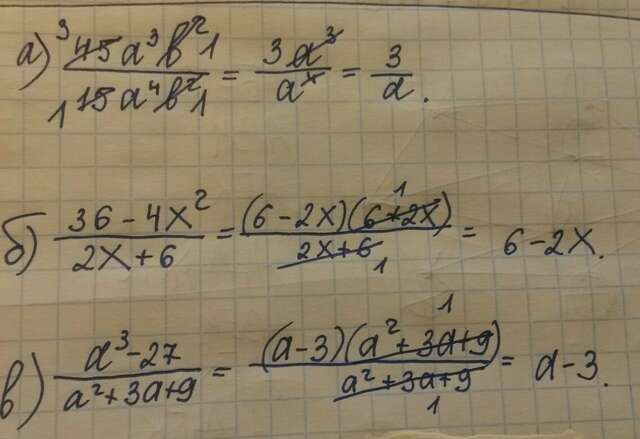 а) ³45a³b²1 / 115a⁴b²1 = 3a³ / a⁴ = 3 / a.
б) 36 - 4x² / 2x + 6 = (6 - 2x)(6 + 2x) 1 / 2x + 6 1 = 6 - 2x.
в) a³ - 27 / a² + 3a + 9 = (a - 3)(a² + 3a + 9) 1 / a² + 3a + 9 1 = a - 3.